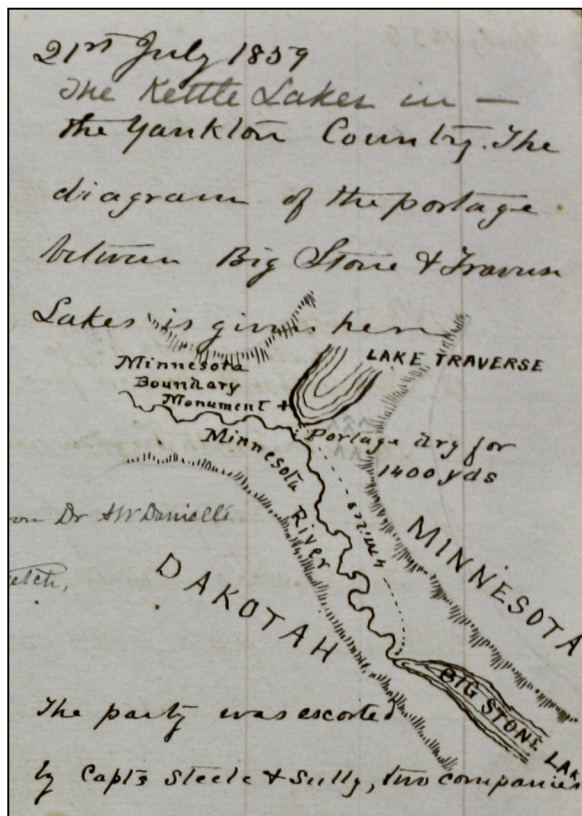 21st July 1859
The Kettle Lakes in —
the Yankton Country. The
diagram of the portage
between Big Stone & Traverse
Lakes is given here
LAKE TRAVERSE
Minnesota
Boundary
Monument +
Portage dry for
1400 yds
Minnesota River
MINNESOTA
Dr
DAKOTAH
BIG STONE LAK
The party was escorted
by Capts Steele & Sully, two companies